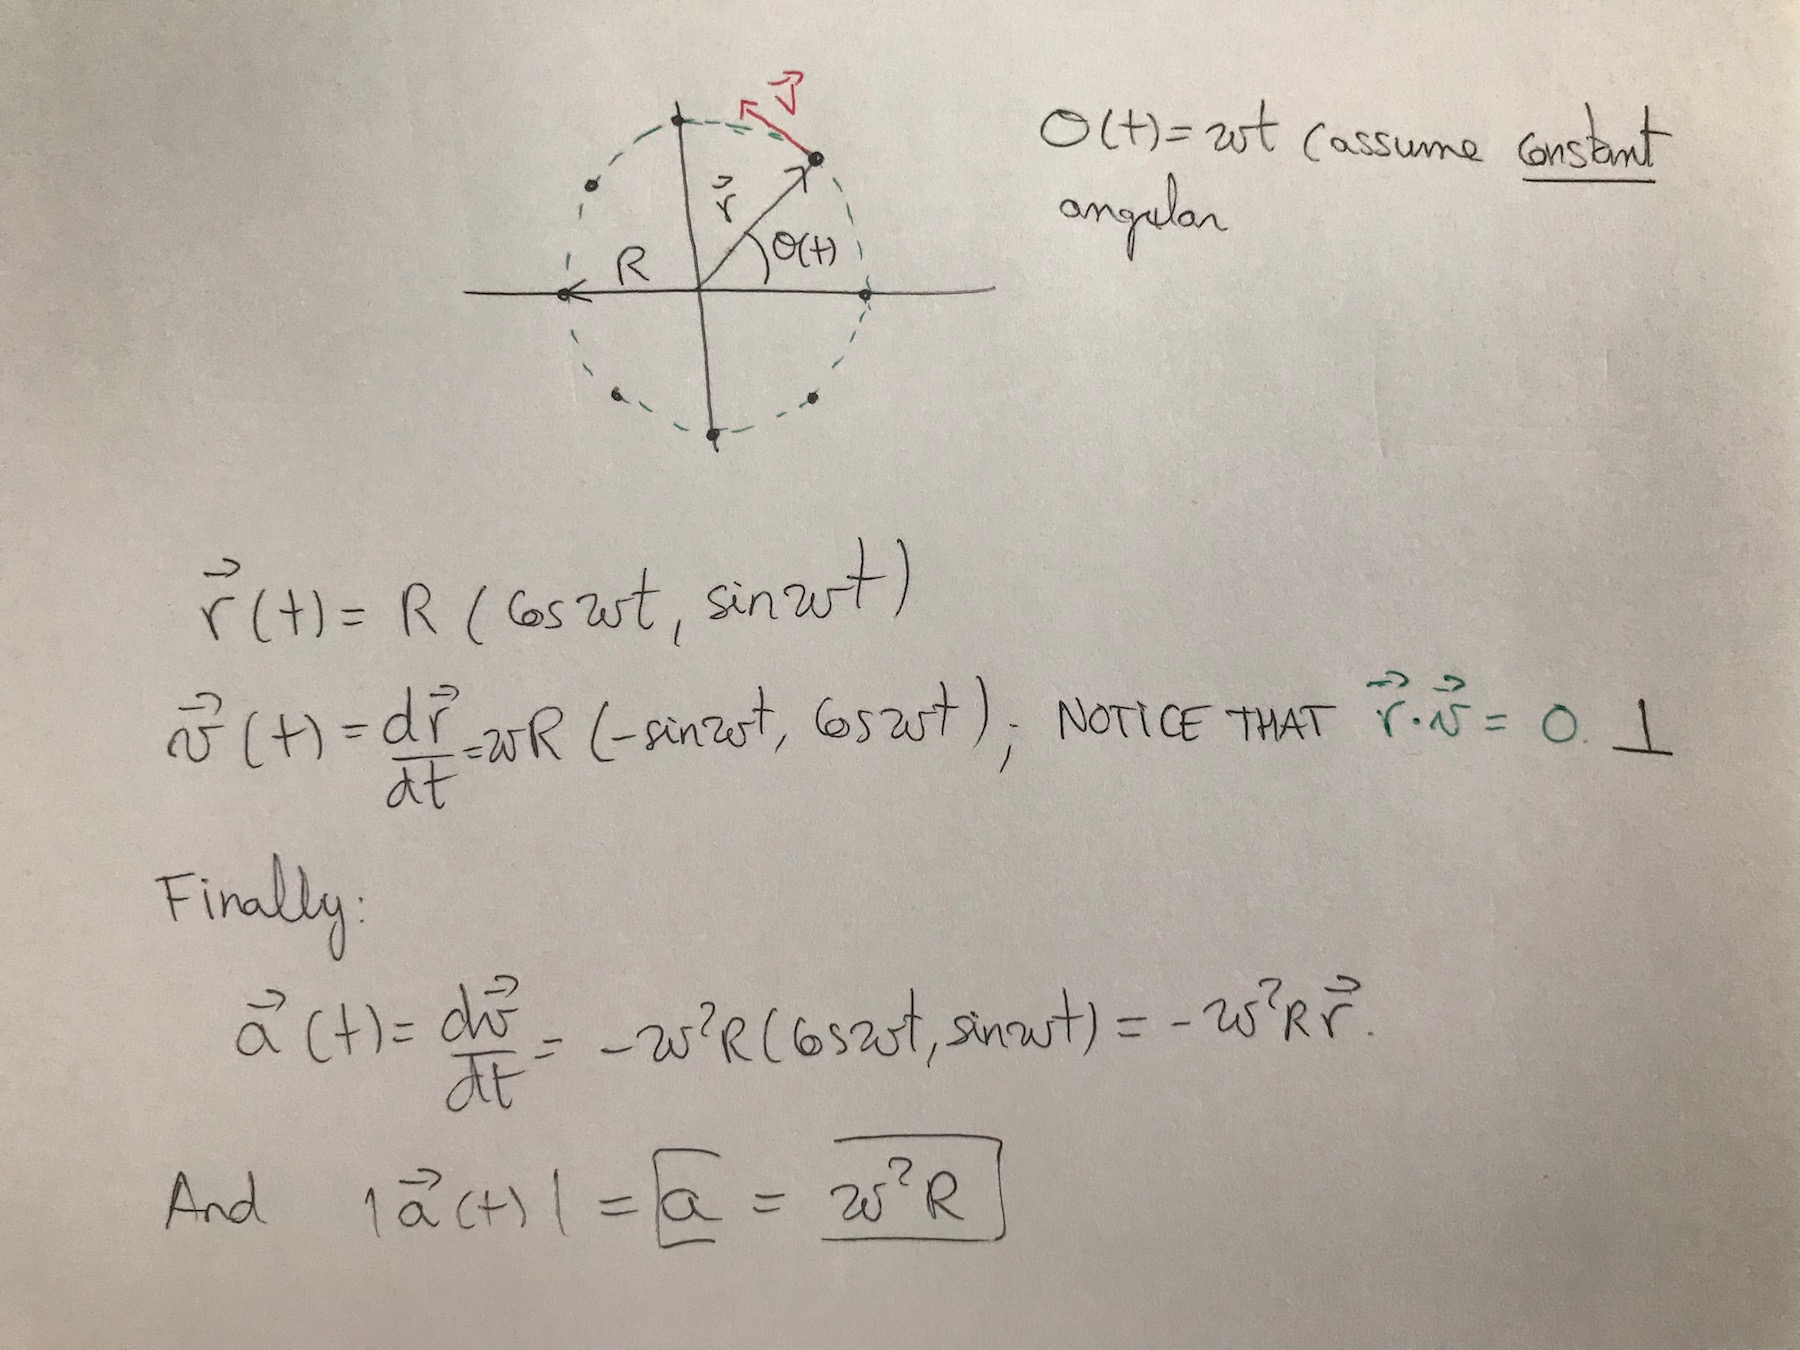 v⃗
θ(t) = ωt (assume constant
angular
r⃗
R
θ(t)
r⃗(t) = R (cos ωt, sin ωt)
v⃗(t) = dr⃗/dt = ωR (-sin ωt, cos ωt); NOTICE THAT r⃗·v⃗ = 0. ⊥
Finally:
a⃗(t) = dv⃗/dt = -ω²R(cos ωt, sin ωt) = -ω²R r⃗.
And |a⃗(t)| = a = ω²R